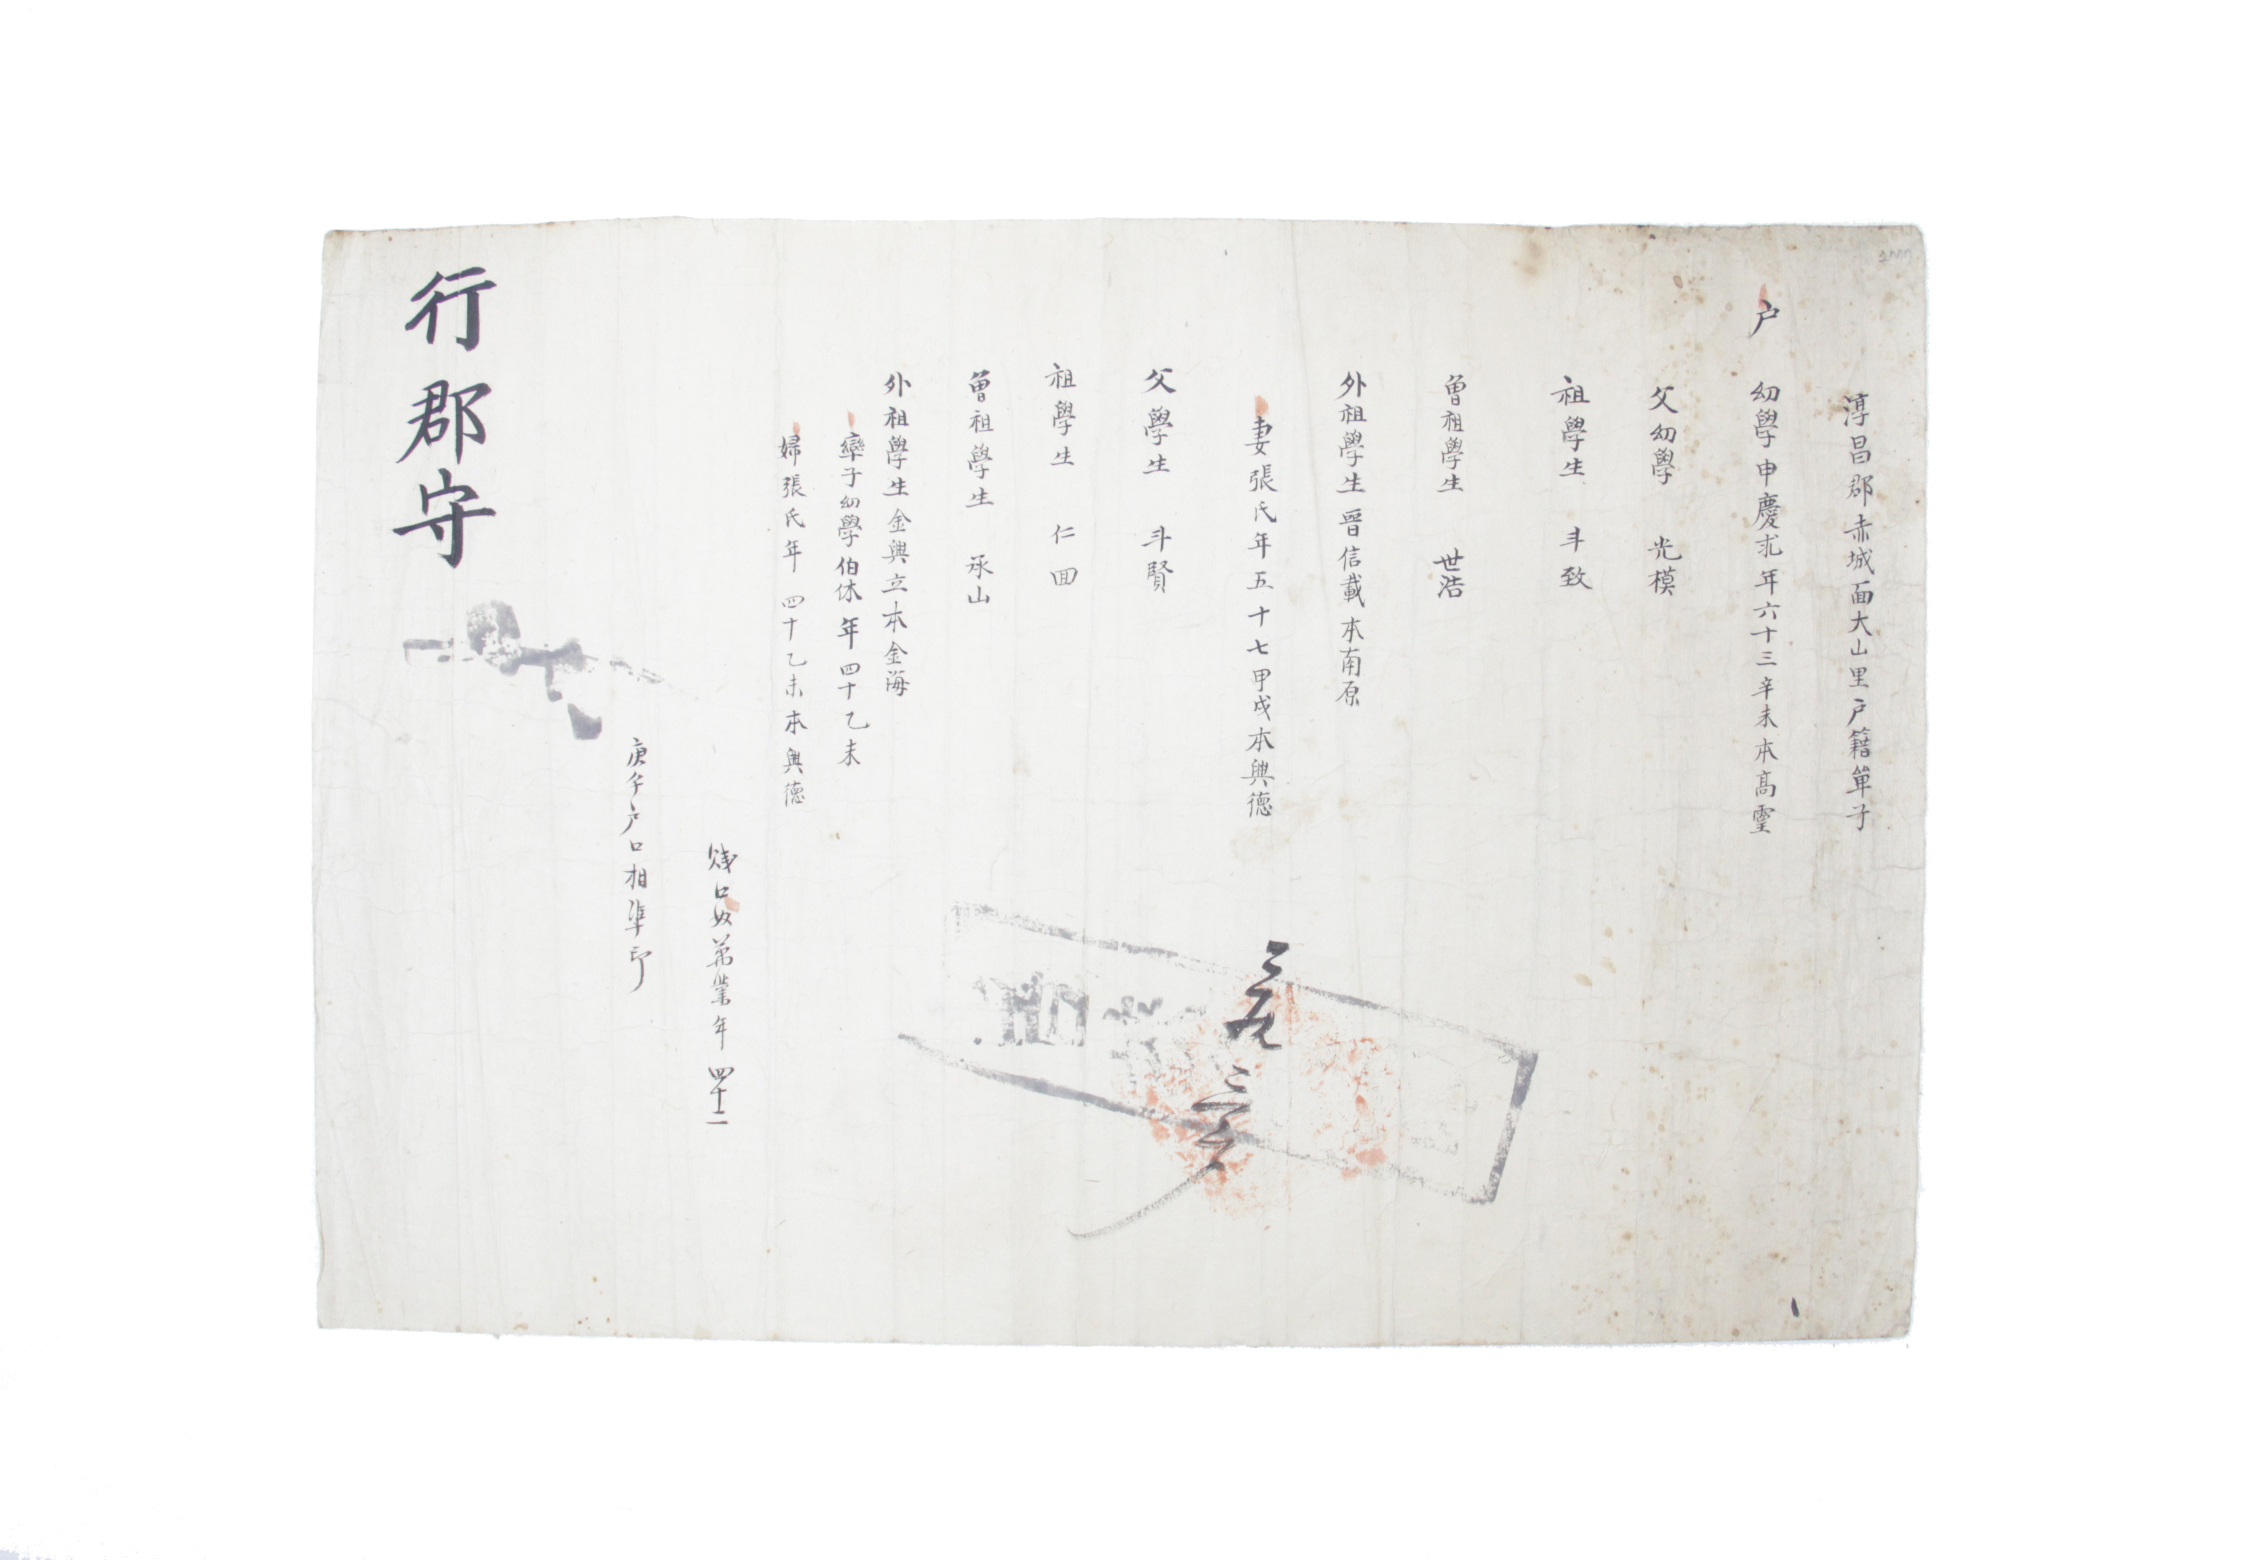 淳昌郡赤城面大山里戶籍單子
戶
幼學申慶*年六十三辛未本高靈
父幼學 光模
祖學生 斗致
曾祖學生 世浩
外祖學生晉信載本南原
妻張氏年五十七甲戌本興德
父學生 斗賢
祖學生 仁回
曾祖學生 承山
外祖學生金興立本金海
率子幼學伯休年四十乙未
婦張氏年四十乙未本興德
賤口奴弟業年四十二
庚午戶口相準印
行郡守